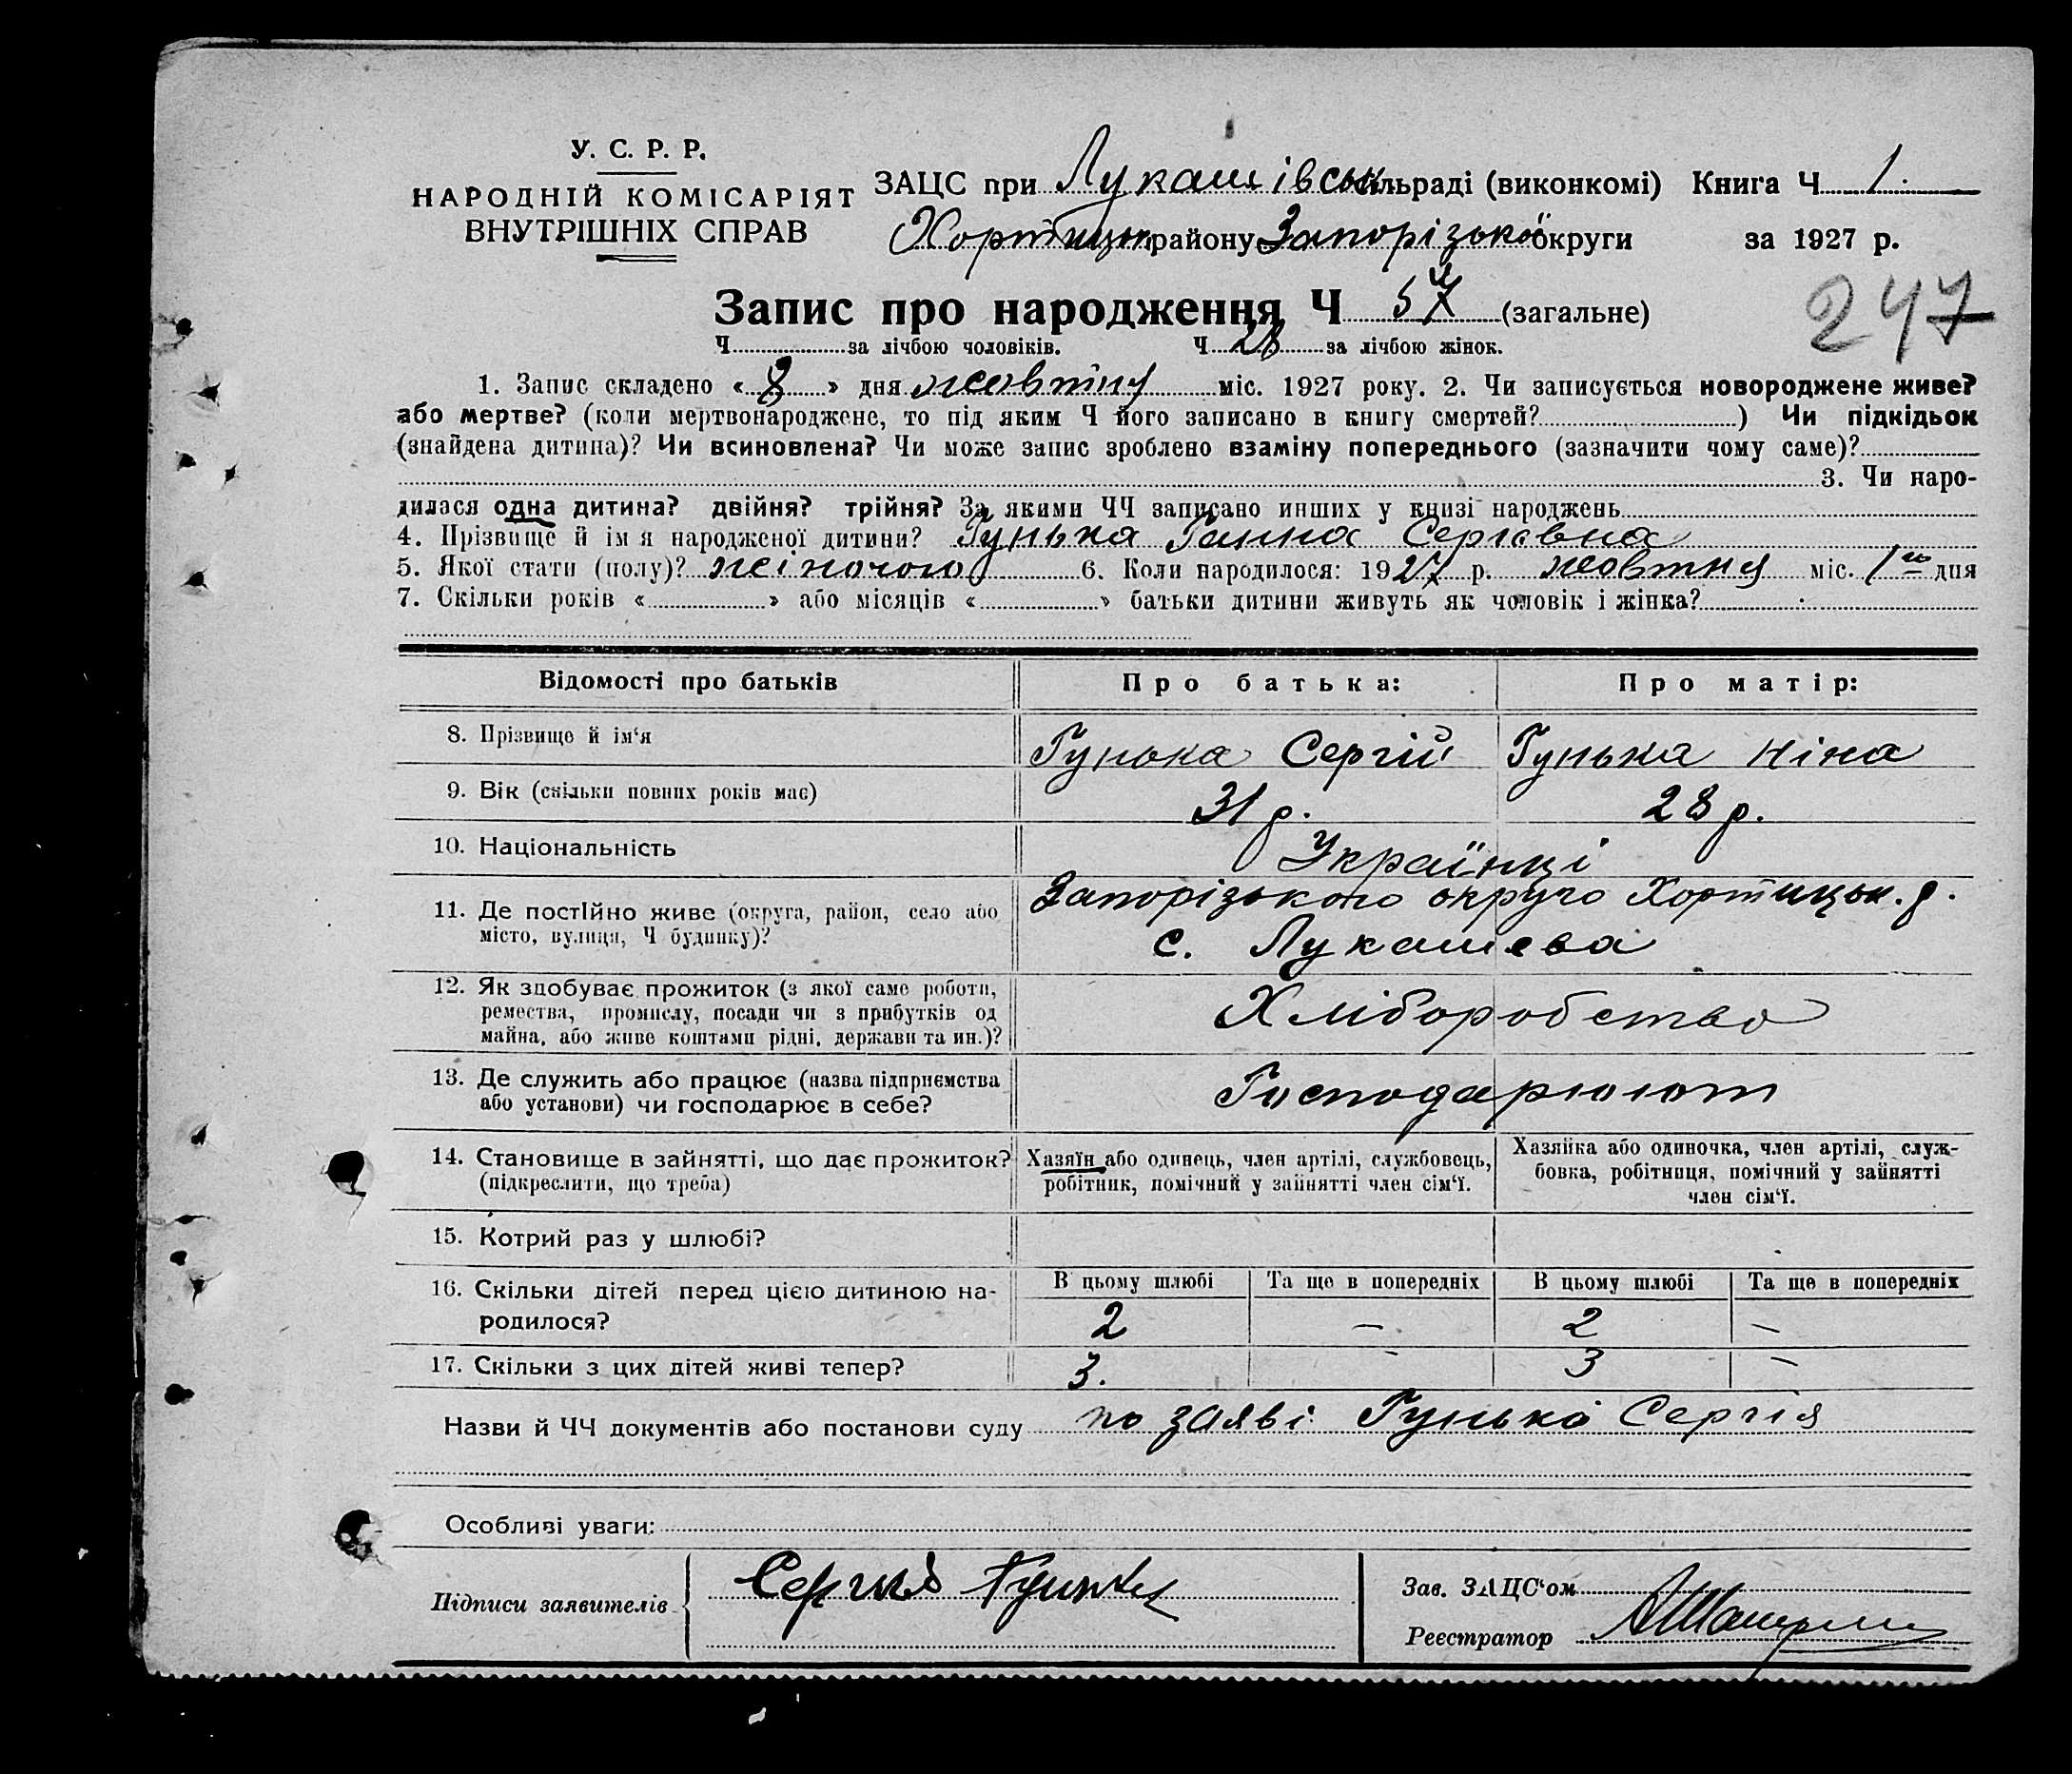 У. С. Р. Р.
НАРОДНІЙ КОМІСАРІЯТ
ВНУТРІШНІХ СПРАВ
ЗАЦС при Лукашівськ. сільраді (виконкомі) Книга Ч 1.
Хортицьк. району Запорізької округи за 1927 р.
Запис про народження Ч (загальне)
247
Ч за лічбою чоловіків. Ч 28 за лічбою жінок.
1. Запис складено « 8 » дня жовтня міс. 1927 року. 2. Чи записується новороджене живе?
або мертве? (коли мертвонароджене, то під яким Ч його записано в книгу смертей? ) Чи підкідьок
(знайдена дитина)? Чи всиновлена? Чи може запис зроблено взаміну попереднього (зазначити чому саме)?
3. Чи наро-
дилася одна дитина? двійня? трійня? За якими ЧЧ записано инших у книзі народжень
4. Прізвище й ім я народженої дитини? Гунька Ганна Сергієвна
5. Якої стати (полу)? жіночого 6. Коли народилося: 1927 р. жовтня міс. 1го дня
7. Скільки років « » або місяців « » батьки дитини живуть як чоловік і жінка?
Відомості про батьків Про батька: Про матір:
8. Прізвище й ім‘я Гунька Сергій Гунька Ніна
9. Вік (скільки повних років має) 31 р. 28 р.
10. Національність Українці
11. Де постійно живе (округа, район, село або Запорізького округо Хортицьк. р.
місто, вулиця, Ч будинку)? с. Лукашева
12. Як здобуває прожиток (з якої саме роботи,
ремества, промислу, посади чи з прибутків од Хліборобство
майна, або живе коштами рідні, держави та ин.)?
13. Де служить або працює (назва підприємства Господарюют
або установи) чи господарює в себе?
14. Становище в зайнятті, що дає прожиток? Хазяїн або одинець, член артілі, службовець, Хазяйка або одиночка, член артілі, служ-
(підкреслити, що треба) робітник, помічний у зайнятті член сім‘ї. бовка, робітниця, помічний у зайнятті
член сім‘ї.
15. Котрий раз у шлюбі?
16. Скільки дітей перед цією дитиною на- В цьому шлюбі Та ще в попередніх В цьому шлюбі Та ще в попередніх
родилося? 2 — 2 —
17. Скільки з цих дітей живі тепер? 3. - 3 —
Назви й ЧЧ документів або постанови суду по заяві Гунька Сергія
Особливі уваги:
Підписи заявителів Гунька
Зав. ЗАЦС‘ом
Реєстратор